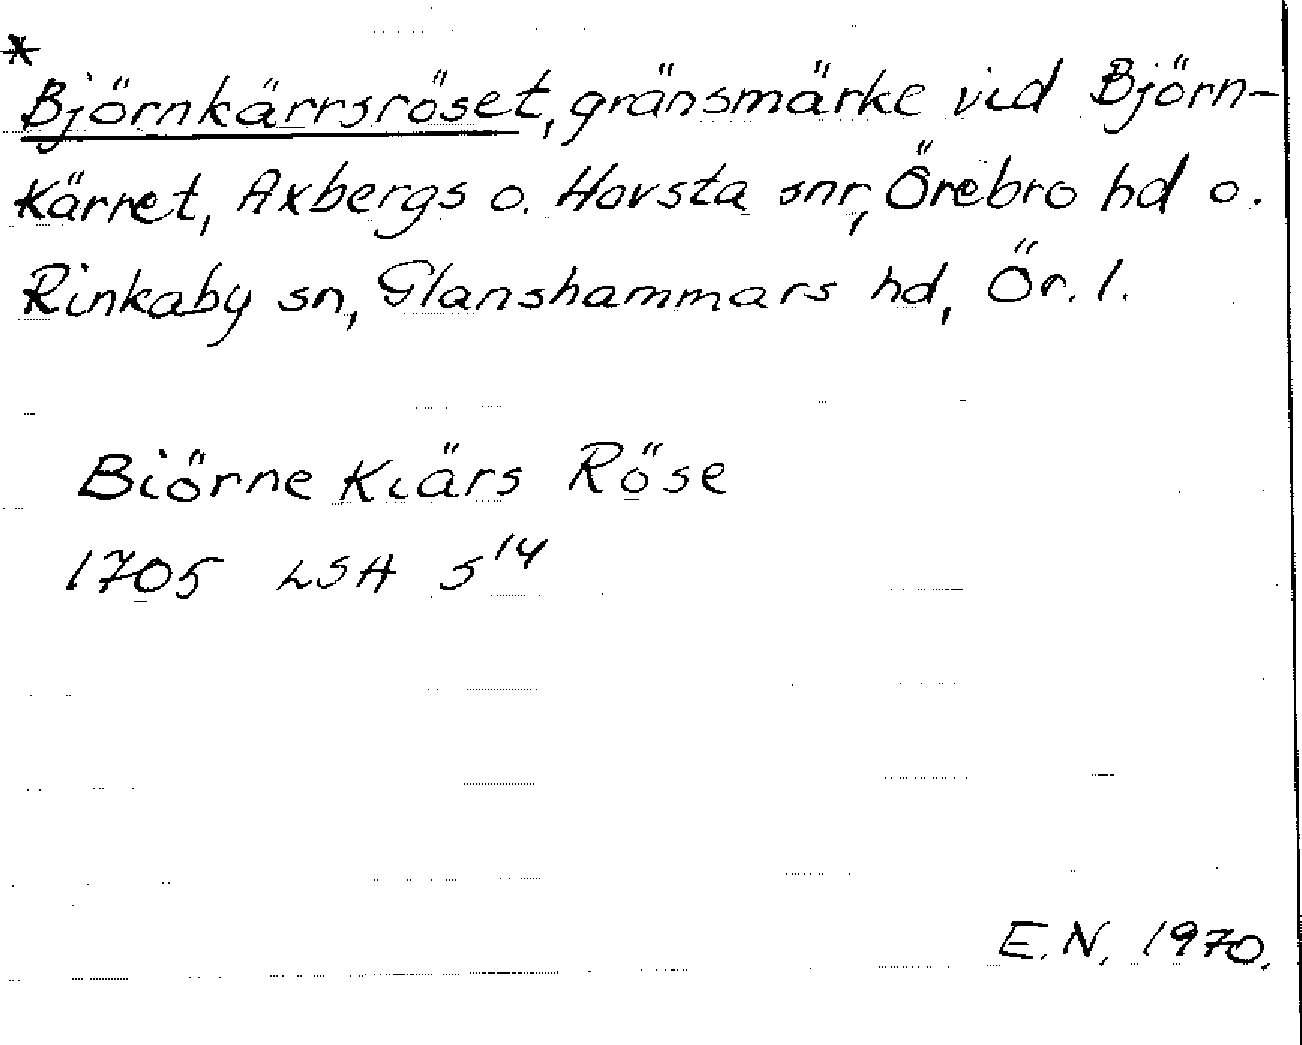 *
Björnkärrsröset, gränsmärke vid Björn-
kärret, Axbergs o. Hovsta snr, Örebro hd o.
Rinkaby sn, Glanshammars hd, Ör. l.
Biörne Kiärs Röse
1705 LSA S¹⁴
E.N. 1970.